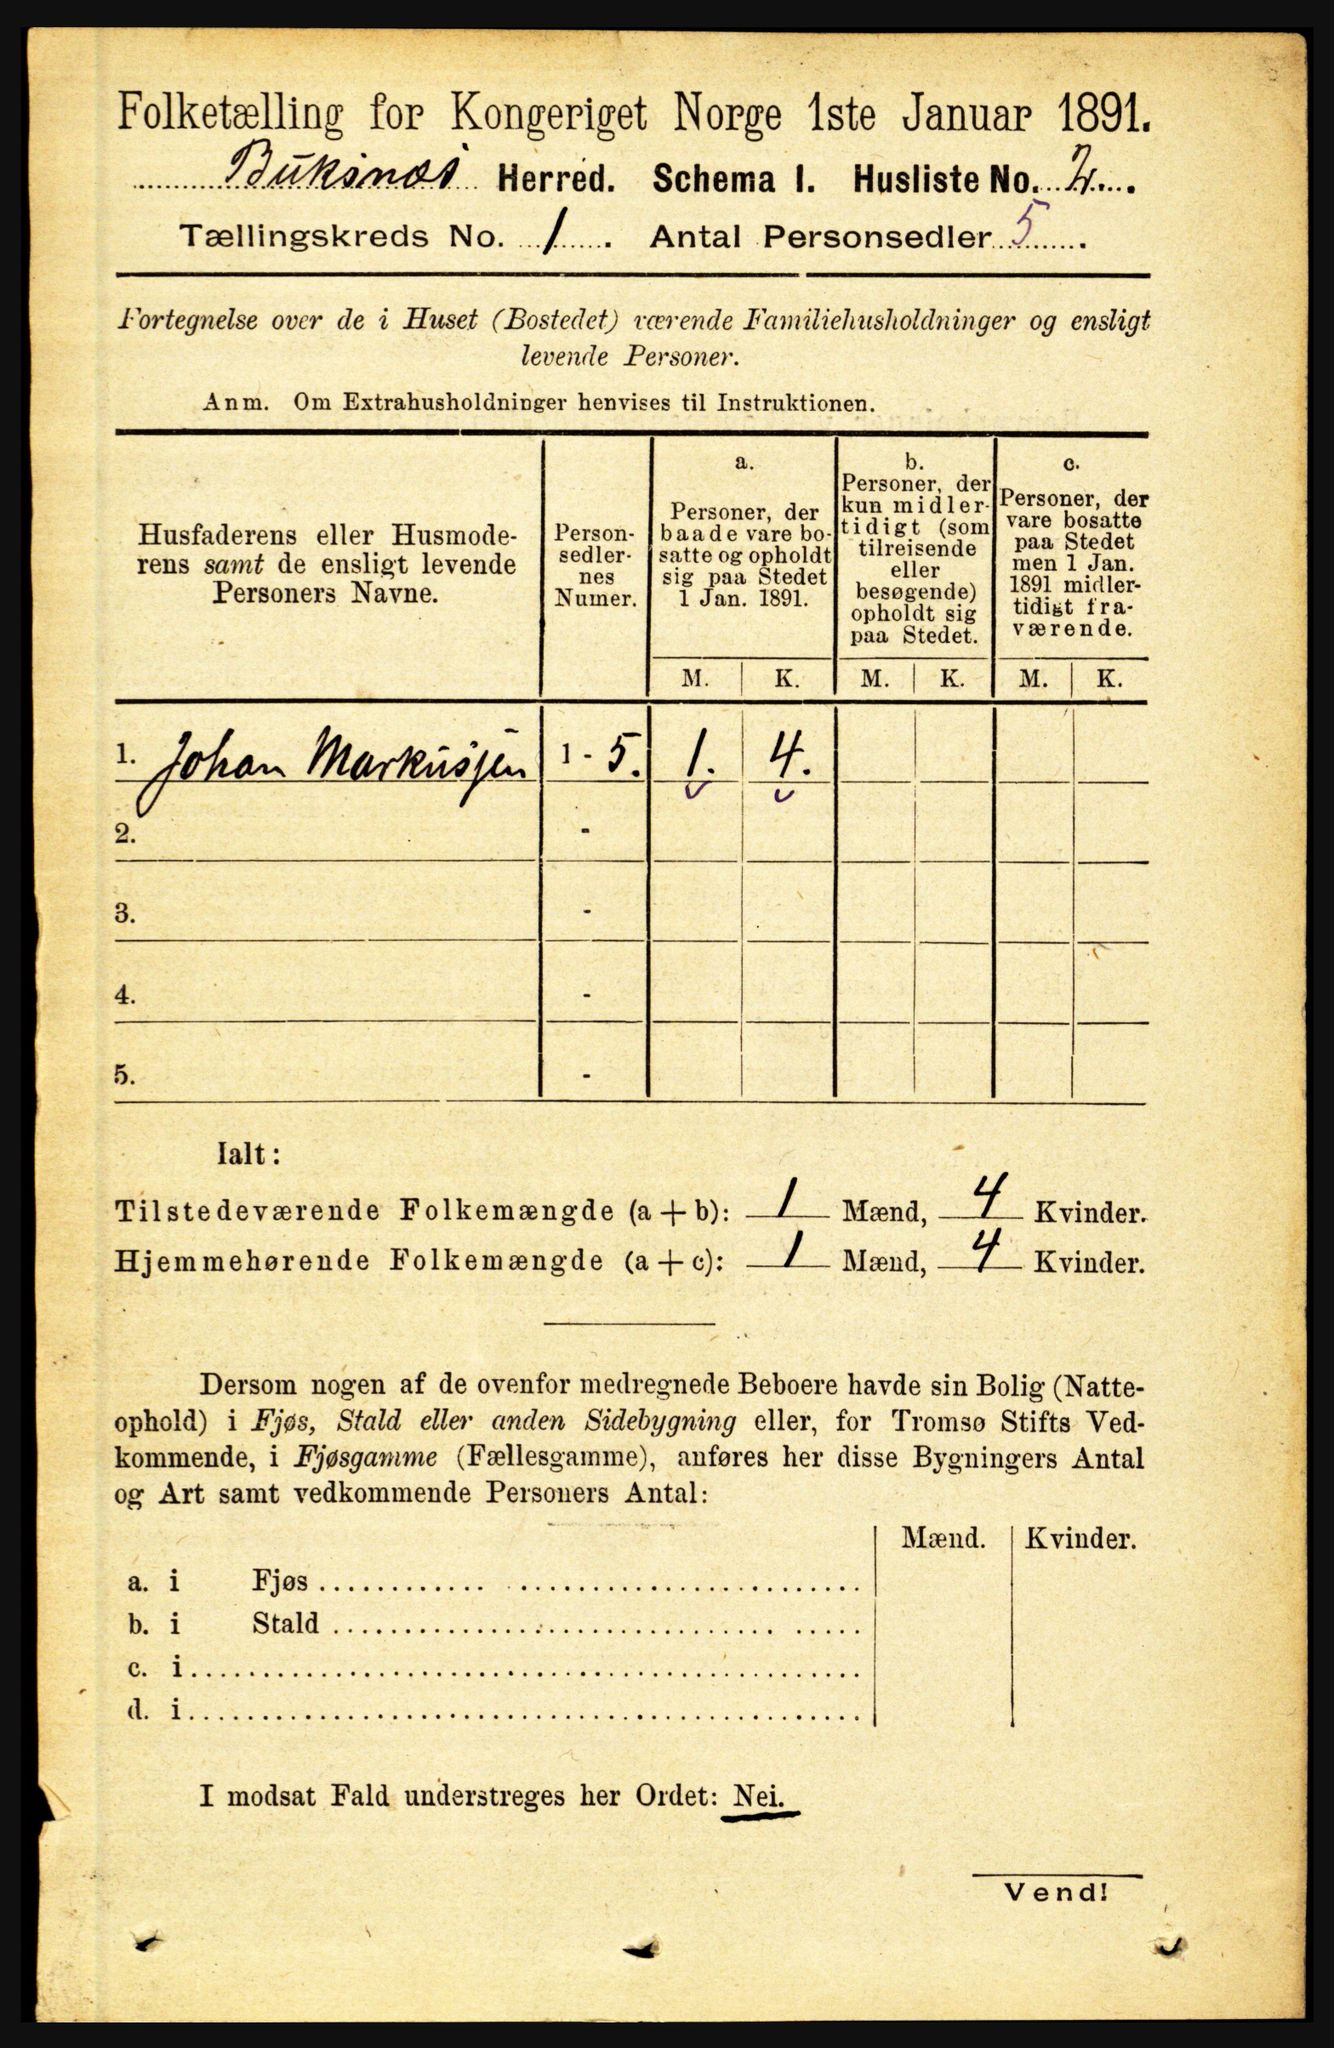 Folketælling for Kongeriget Norge 1ste Januar 1891.
Buksnæs Herred. Schema I. Husliste No. 2.
Tællingskreds No. 1. Antal Personsedler 5.
Fortegnelse over de i Huset (Bostedet) værende Familiehusholdninger og ensligt
levende Personer.
Anm. Om Extrahusholdninger henvises til Instruktionen.
Husfaderens eller Husmode-
rens samt de ensligt levende
Personers Navne.
Person-
sedler-
nes
Numer.
a.
Personer, der
baade vare bo-
satte og opholdt
sig paa Stedet
1 Jan. 1891.
b.
Personer, der
kun midler-
tidigt (som
tilreisende
eller
besøgende)
opholdt sig
paa Stedet.
c.
Personer, der
vare bosatte
paa Stedet
men 1 Jan.
1891 midler-
tidigt fra-
værende.
M. K. M. K. M. K.
1. Johan Markussen 1 - 5. 1. 4.
2. -
3. -
4. -
5. -
Ialt:
Tilstedeværende Folkemængde (a + b): 1 Mænd, 4 Kvinder.
Hjemmehørende Folkemængde (a + c): 1 Mænd, 4 Kvinder.
Dersom nogen af de ovenfor medregnede Beboere havde sin Bolig (Natte-
ophold) i Fjøs, Stald eller anden Sidebygning eller, for Tromsø Stifts Ved-
kommende, i Fjøsgamme (Fællesgamme), anføres her disse Bygningers Antal
og Art samt vedkommende Personers Antal:
Mænd. Kvinder.
a. i Fjøs
b. i Stald
c. i
d. i
I modsat Fald understreges her Ordet: Nei.
Vend!